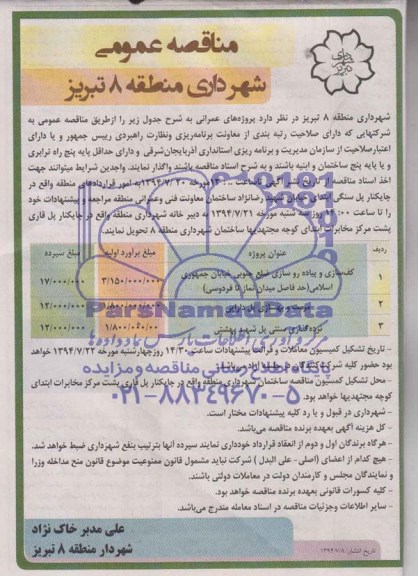 مناقصه عمومی
شهرداری منطقه ۸ تبریز
شهرداری منطقه ۸ تبریز در نظر دارد پروژه‌های عمرانی به شرح جدول زیر را ازطریق مناقصه عمومی به
شرکتهایی که دارای صلاحیت رتبه بندی از معاونت برنامه‌ریزی ونظارت راهبردی رییس جمهور و یا دارای
اعتبارصلاحیت از سازمان مدیریت و برنامه ریزی استانداری آذربایجان‌شرقی و دارای حداقل پایه پنج راه ترابری
و یا پایه پنج ساختمان و ابنیه باشند و به شرح اسناد مناقصه باشند واگذار نمایند. واجدین شرایط میتوانند جهت
اخذ اسناد مناقصه از تاریخ نشر آگهی تا ساعت ۱۴:۰۰ مورخه ۱۳۹۴/۷/۲۰ به امور قراردادهای منطقه واقع در
چایکنار پل سنگی ابتدای خیابان شهید رضانژاد ساختمان معاونت فنی وعمرانی منطقه مراجعه و پیشنهادات خود
را تا ساعت روز سه شنبه مورخه ۱۳۹۴/۷/۲۱ به دبیر خانه شهرداری منطقه واقع در چایکنار پل قاری
پشت مرکز مخابرات ابتدای کوچه مجتهدیها ساختمان شهرداری منطقه ۸ تحویل نمایند.
ردیف عنوان پروژه مبلغ برآورد اولیه مبلغ سپرده
۱ کف‌سازی و پیاده رو سازی ضلع جنوبی خیابان جمهوری اسلامی(حد فاصل میدان نماز تا فردوسی) ۳/۱۵۰/۰۰۰/۰۰۰ ۱۷/۰۰۰/۰۰۰
۲ مرمت و بهسازی پل دارایی ۱۲/۰۰۰/۰۰۰
۳ نرده گذاری سنتی پل شهید بهشتی ۱/۸۰۰/۰۰۰/۰۰۰ ۱۲/۰۰۰/۰۰۰
- تاریخ تشکیل کمیسیون معاملات و قرائت پیشنهادات ساعت ۱۴/۳۰ روزچهارشنبه مورخه ۱۳۹۴/۷/۲۲ خواهد
بود حضور کلیه شرکت‌کنندگان در جلسه آزاد می‌باشد.
- محل تشکیل کمسیون مناقصه ساختمان شهرداری منطقه واقع در چایکنار پل قاری پشت مرکز مخابرات ابتدای
کوچه مجتهدیها خواهد بود.
- شهرداری در قبول و یا رد کلیه پیشنهادات مختار است.
- کل هزینه آگهی بعهده برنده مناقصه می‌باشد.
- هرگاه برندگان اول و دوم از انعقاد قرارداد خودداری نمایند سپرده آنها بترتیب بنفع شهرداری ضبط خواهد شد.
- هیچ کدام از اعضای (اصلی- علی البدل) شرکت نباید مشمول قانون ممنوعیت موضوع قانون منع مداخله وزرا
و نمایندگان مجلس و کارمندان دولت در معاملات دولتی باشند.
- کلیه کسورات قانونی بعهده برنده مناقصه خواهد بود.
- سایر اطلاعات وجزئیات مناقصه در اسناد معامله مندرج می‌باشد.
علی مدبر خاک نژاد
شهردار منطقه ۸ تبریز
تاریخ انتشار: ۱۳۹۴/۷/۸
ParsNamadData
مرکز فرآوری اطلاعات پارس نماد داده‌ها
پایگاه اطلاع رسانی مناقصه و مزایده
۰۲۱-۸۸۳۴۹۶۷۰-۵